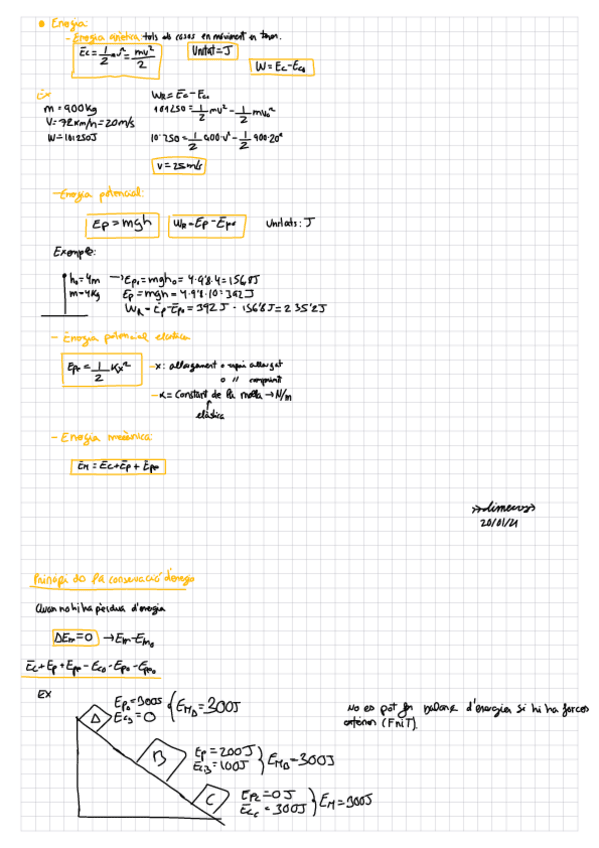 • Energia:
- Energia cinètica tots els cosos en moviment en tenen.
Ec = 1/2 mv² = mv²/2
Unitat = J
W = Ec - Ec₀
Ex
m = 900 Kg
V = 72 Km/h = 20 m/s
W = 101250 J
WR = Ec - Ec₀
101250 = 1/2 mv² - 1/2 mv₀²
101250 = 1/2 900·v² - 1/2 900·20²
v = 25 m/s
- Energia potencial:
Ep = mgh
WR = Ep - Ep₀
Unitats: J
Exemple:
h₀ = 4m
m = 4 Kg
→ Ep₀ = mgh₀ = 4·9'8·4 = 156'8 J
Ep = mgh = 4·9'8·10 = 392 J
WR = Ep - Ep₀ = 392 J - 156'8 J = 235'2 J
- Energia potencial elàstica
Epe = 1/2 Kx²
- x: allargament
o // comprimit
- K = Constant de la molla → N/m
elàstica
- Energia mecànica:
EM = Ec + Ep + Epe
>>dimecres>>
20/01/21
Principi de la conservació d'energia
Quan no hi ha pèrdua d'energia
ΔEm = 0 → Em - Em₀
Ec + Ep + Epe - Ec₀ - Ep₀ - Epe₀
EX
A
EpA = 300J
EcA = 0
EMA = 300J
B
Ep = 200J
EcB = 100J
EMB = 300J
C
EpC = 0J
EcC = 300J
EM = 300J
No es pot fer balanç d'energia si hi ha forces
externes (FniT).